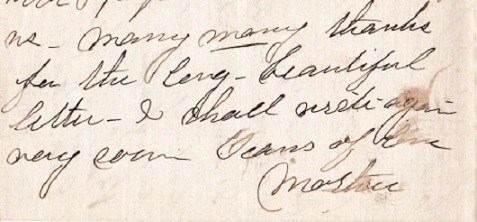 us - many many thanks
for the long - beautiful
letter - I shall write again
very soon
Mother